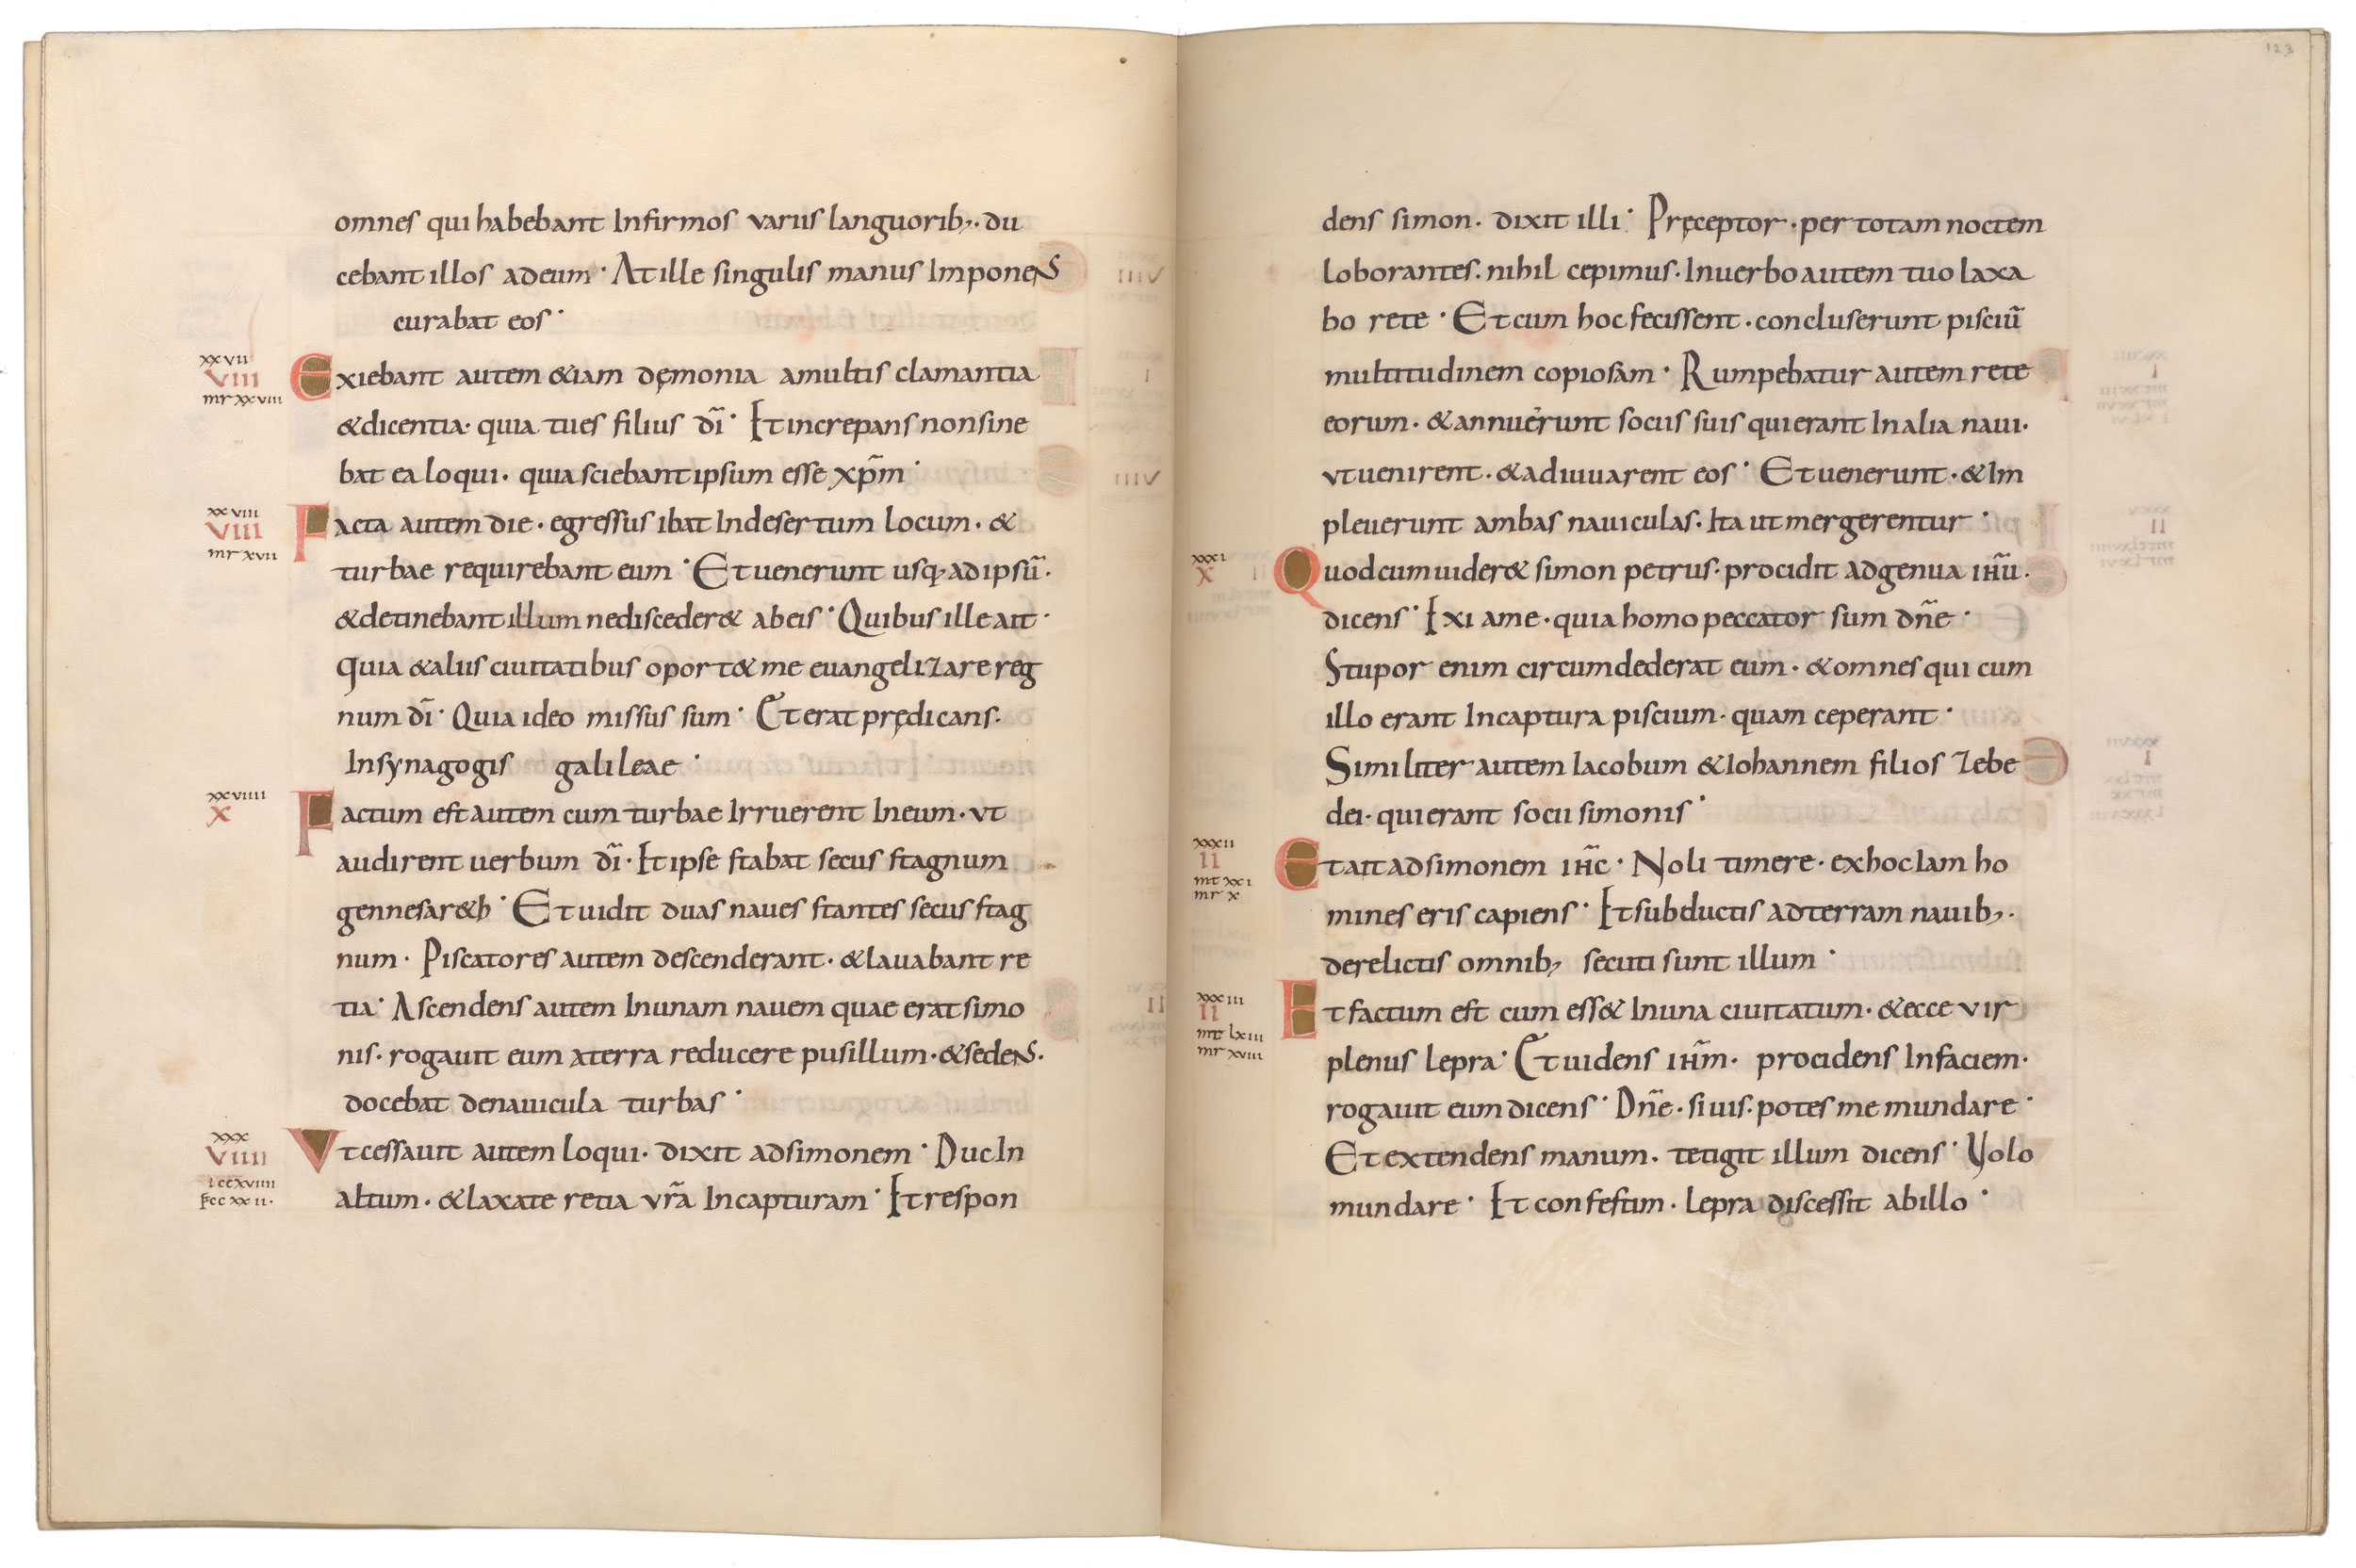 omnes qui habebant Infirmos variis languorib;. du
cebant illos adeum· At ille singulis manus Imponens
curabat eos·
xxvii
VIII
mr xxviii
Exiebant autem &iam dęmonia amultis clamantia
&dicentia· quia tues filius dī· Et increpans nonsine
bat ea loqui· quia sciebant ipsum esse xp̄m·
xxviii
VIII
mr xvii
Facta autem die· egressus ibat Indesertum locum· &
turbae requirebant eum· Et uenerunt usq; adipsū·
&detinebant illum nedisceder& abeis· Quibus ille ait·
Quia &aliis ciuitatibus oport& me euangelizare reg
num dī· Quia ideo missus sum· Et erat prędicans·
Insynagogis galileae·
xxviiii
X
Factum est autem cum turbae Irruerent Ineum· vt
audirent uerbum dī· Et ipse stabat secus stagnum
gennesar&h· Et uidit duas naues stantes secus stag
num· Piscatores autem descenderant· &lauabant re
tia· Ascendens autem Inunam nauem quae erat simo
nis· rogauit eum aterra reducere pusillum· &sedens·
docebat denauicula turbas·
xxx
VIIII
iccxviiii
Vt cessauit autem loqui· dixit adsimonem· Duc In
altum· &laxate retia vr̄a Incapturam· Et respon
123
dens simon· dixit illi· Pręceptor· per totam noctem
loborantes· nihil cepimus· Inuerbo autem tuo laxa
bo rete· Et cum hoc fecissent· concluserunt pisciū
multitudinem copiosam· Rumpebatur autem rete
eorum· &annuerunt sociis suis qui erant Inalia naui·
vt uenirent· &adiuuarent eos· Et uenerunt· &Im
pleuerunt ambas nauiculas· Ita ut mergerentur·
xxxi
X
Quod cum uider& simon petrus· procidit adgenua ihū·
dicens· Exi ame· quia homo peccator sum dn̄e·
Stupor enim circumdederat eum· &omnes qui cum
illo erant Incaptura piscium· quam ceperant·
Similiter autem Iacobum &Iohannem filios Zebe
dei· qui erant socii simonis·
xxxii
II
mt xxi
mr x
Et ait adsimonem ihc̄· Noli timere· exhoc Iam ho
mines eris capiens· Et subductis adterram nauib;·
derelictis omnib; secuti sunt illum·
xxxiii
II
mt lxiii
mr xviii
Et factum est cum ess& Inuna ciuitatum· &ecce vir
plenus lepra· Et uidens ihm̄· procidens Infaciem·
rogauit eum dicens· Dn̄e· si uis· potes me mundare·
Et extendens manum· tetigit illum dicens· Volo
mundare· Et confestim· lepra discessit abillo·